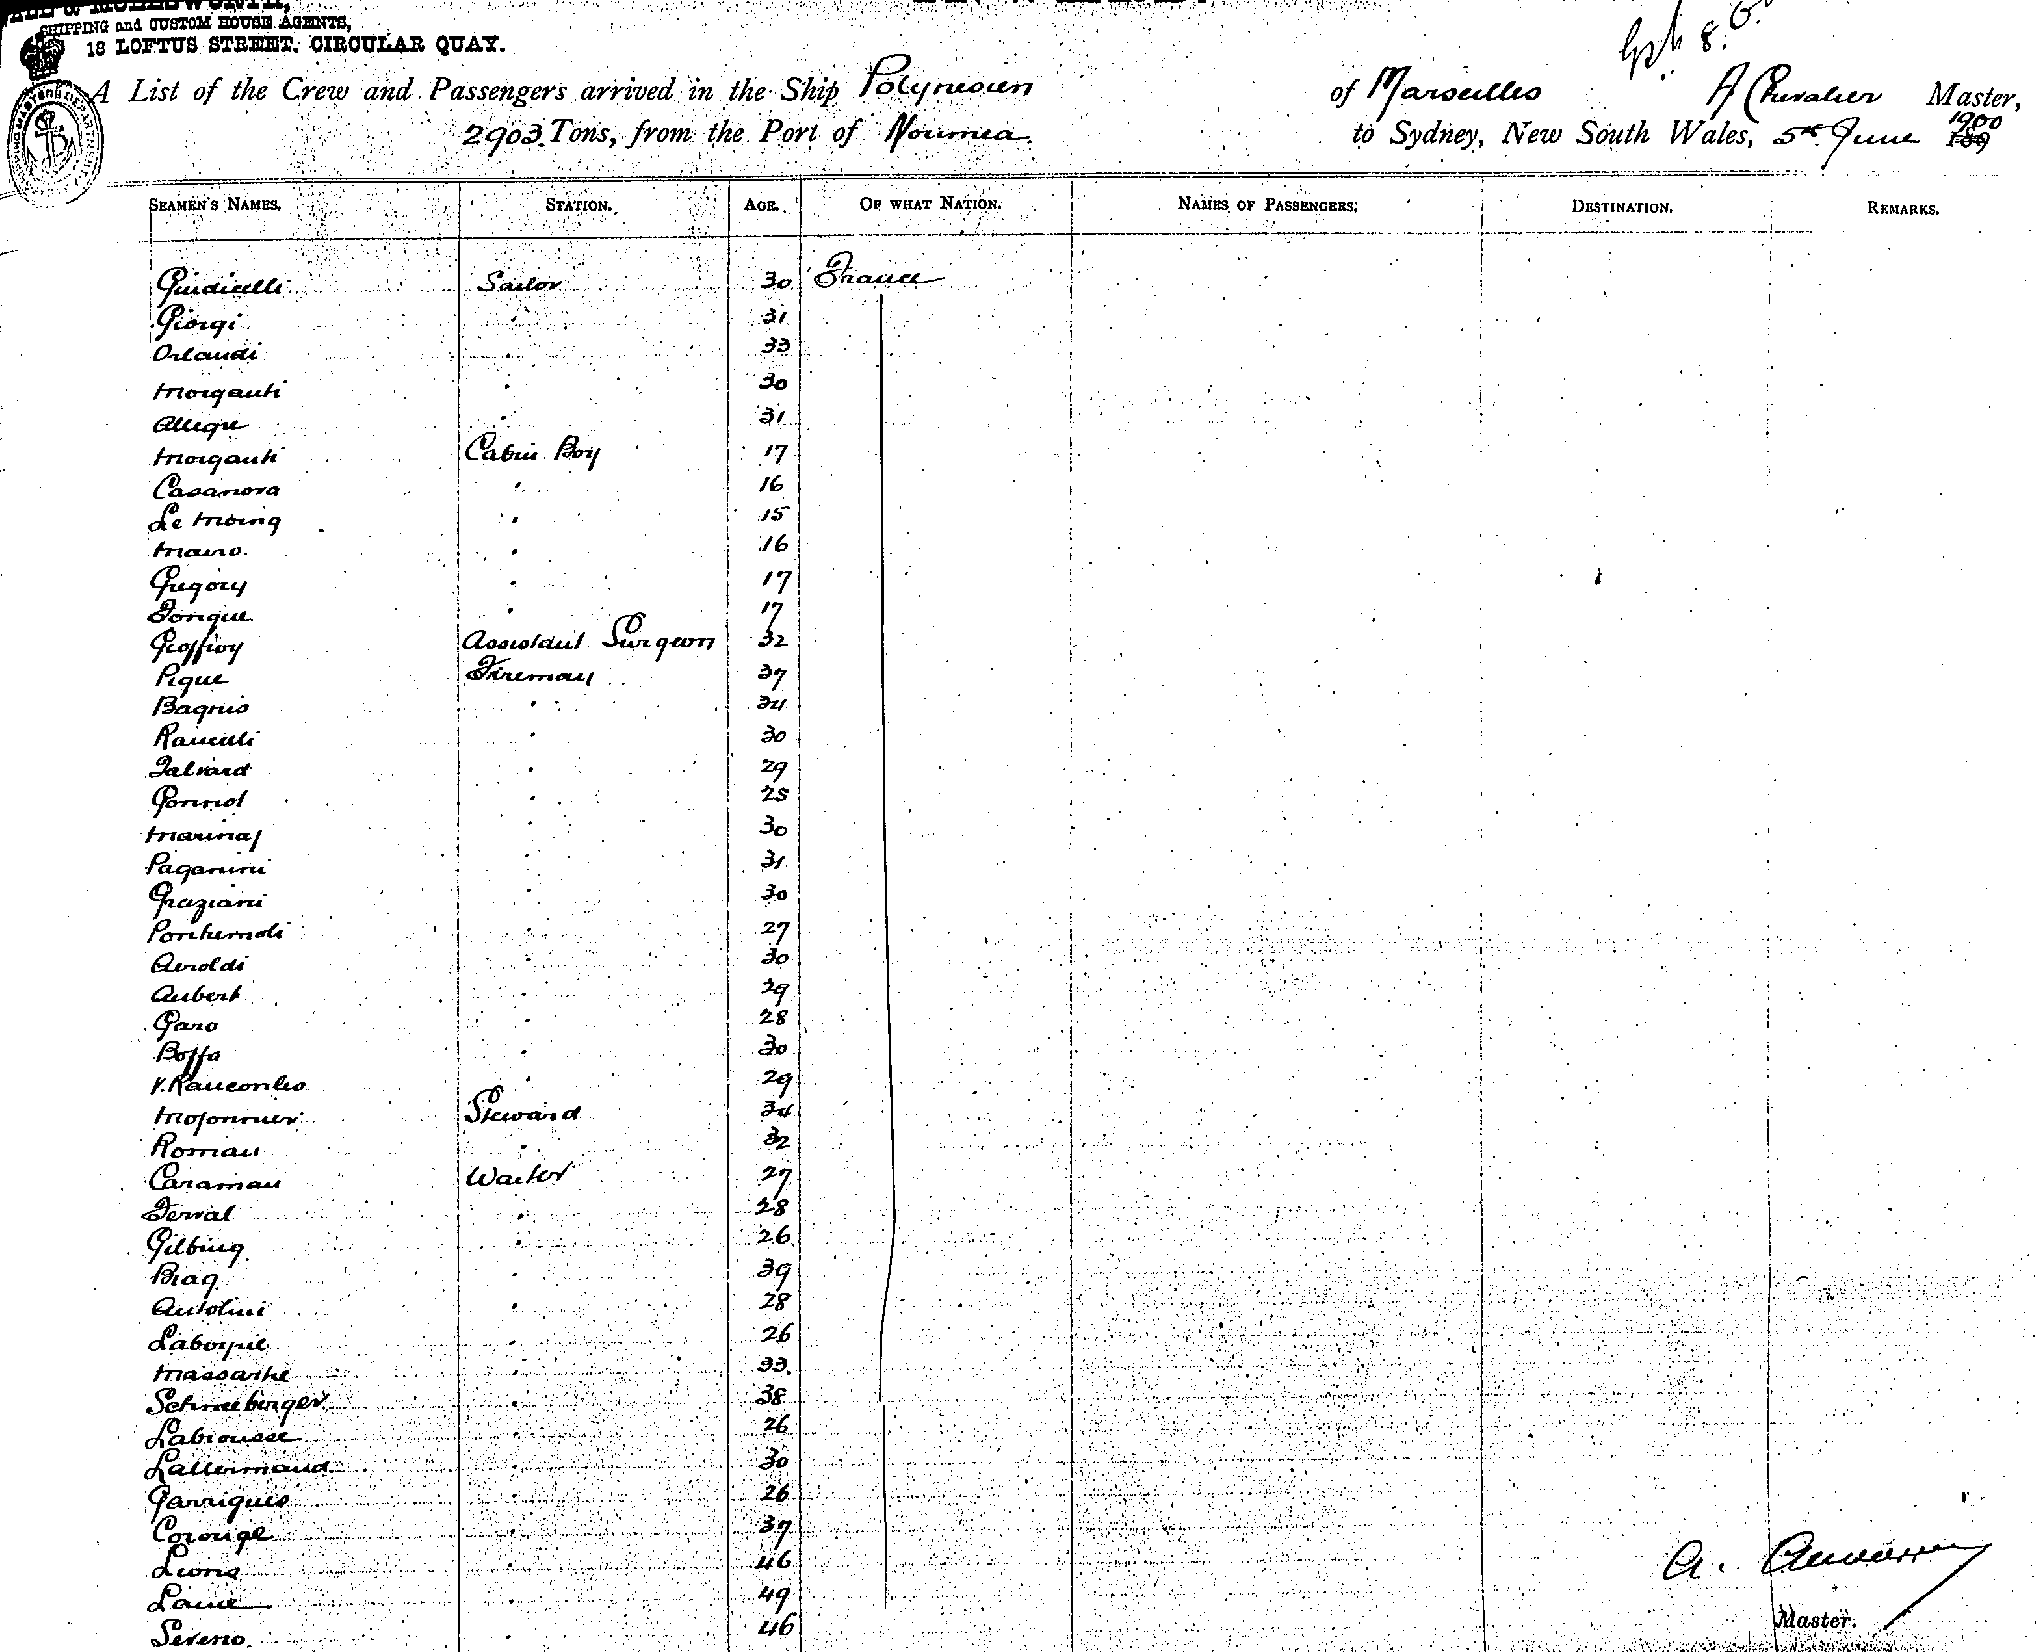 SHIPPING and CUSTOM HOUSE AGENTS,
18 LOFTUS STREET. CIRCULAR QUAY.
A List of the Crew and Passengers arrived in the Ship Polynesien of Marseilles A Chevalier Master,
2903 Tons, from the Port of Noumea to Sydney, New South Wales, 5th June 1900
SEAMEN'S NAMES. STATION. AGE. OF WHAT NATION. NAMES OF PASSENGERS. DESTINATION. REMARKS.
Giudicelli Sailor 30 France
Giorgi " 31
Orlandi 33
Morganti " 30
Allegre " 31
Morganti Cabin Boy 17
Casanova " 16
Le Moing " 15
Mairo " 16
Gregory " 17
Tonque " 17
Geoffroy Assistant Surgeon 32
Pique Fireman 37
Bagnis " 34
" 30
Talvard " 29
Gonnot " 25
" 30
Paganini " 31
Graziani " 30
" 27
Airoldi " 30
Aubert " 29
Garo " 28
Boffa " 30
" 29
Mojonnier Steward 34
Roman " 32
Caraman Waiter 27
Terval " 28
Gilbing " 26
Braq " 39
Antolini " 28
" 26
" 33
Schneeberger " 38
Labrousse " 26
Lallermand " 30
Garrigues " 26
Corouge " 37
Lions " 46
Laine " 49
Sereno " 46
A. Chevalier
Master.